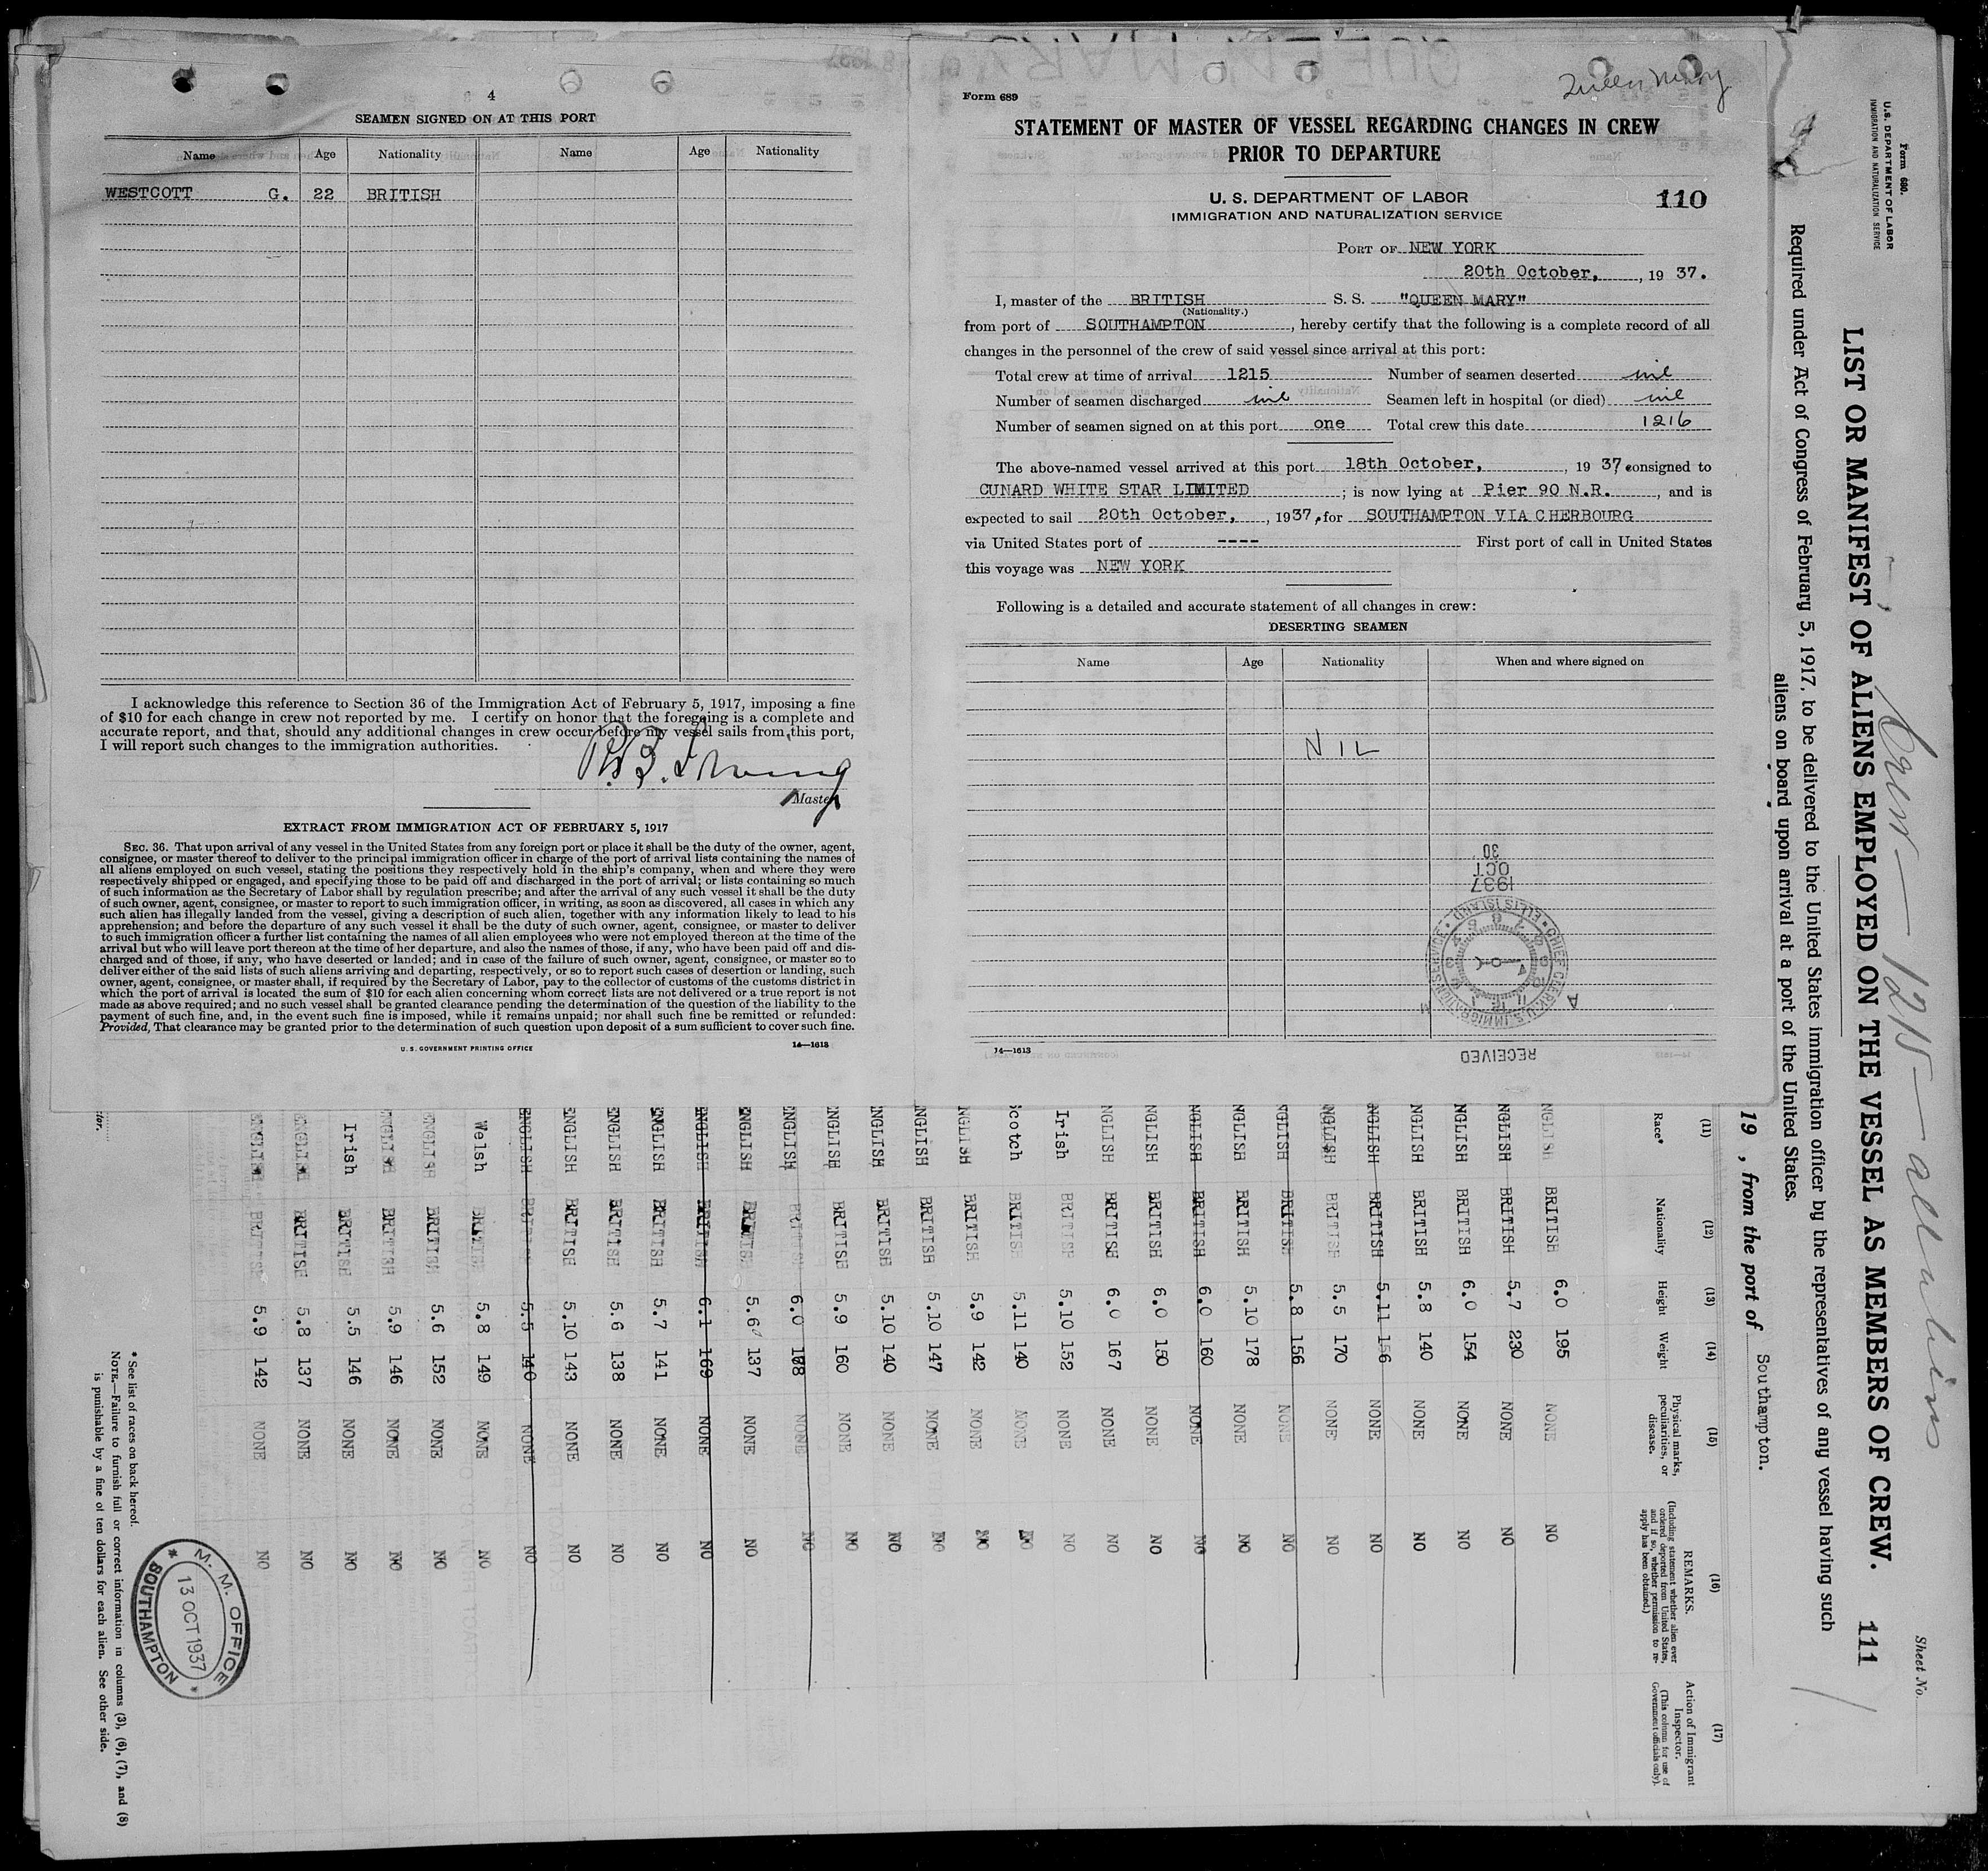 4
SEAMEN SIGNED ON AT THIS PORT
Name Age Nationality Name Age Nationality
WESTCOTT G. 22 BRITISH
I acknowledge this reference to Section 36 of the Immigration Act of February 5, 1917, imposing a fine
of $10 for each change in crew not reported by me. I certify on honor that the foregoing is a complete and
accurate report, and that, should any additional changes in crew occur before my vessel sails from this port,
I will report such changes to the immigration authorities.
Master
EXTRACT FROM IMMIGRATION ACT OF FEBRUARY 5, 1917
SEC. 36. That upon arrival of any vessel in the United States from any foreign port or place it shall be the duty of the owner, agent,
consignee, or master thereof to deliver to the principal immigration officer in charge of the port of arrival lists containing the names of
all aliens employed on such vessel, stating the positions they respectively hold in the ship's company, when and where they were
respectively shipped or engaged, and specifying those to be paid off and discharged in the port of arrival; or lists containing so much
of such information as the Secretary of Labor shall by regulation prescribe; and after the arrival of any such vessel it shall be the duty
of such owner, agent, consignee, or master to report to such immigration officer, in writing, as soon as discovered, all cases in which any
such alien has illegally landed from the vessel, giving a description of such alien, together with any information likely to lead to his
apprehension; and before the departure of any such vessel it shall be the duty of such owner, agent, consignee, or master to deliver
to such immigration officer a further list containing the names of all alien employees who were not employed thereon at the time of the
arrival but who will leave port thereon at the time of her departure, and also the names of those, if any, who have been paid off and dis-
charged and of those, if any, who have deserted or landed; and in case of the failure of such owner, agent, consignee, or master so to
deliver either of the said lists of such aliens arriving and departing, respectively, or so to report such cases of desertion or landing, such
owner, agent, consignee, or master shall, if required by the Secretary of Labor, pay to the collector of customs of the customs district in
which the port of arrival is located the sum of $10 for each alien concerning whom correct lists are not delivered or a true report is not
made as above required; and no such vessel shall be granted clearance pending the determination of the question of the liability to the
payment of such fine, and, in the event such fine is imposed, while it remains unpaid; nor shall such fine be remitted or refunded:
Provided, That clearance may be granted prior to the determination of such question upon deposit of a sum sufficient to cover such fine.
U. S. GOVERNMENT PRINTING OFFICE 14—1613
Queen Mary
Form 689
STATEMENT OF MASTER OF VESSEL REGARDING CHANGES IN CREW
PRIOR TO DEPARTURE
U. S. DEPARTMENT OF LABOR
IMMIGRATION AND NATURALIZATION SERVICE
110
PORT OF NEW YORK
20th October, , 19 37.
I, master of the BRITISH S. S. "QUEEN MARY"
(Nationality.)
from port of SOUTHAMPTON , hereby certify that the following is a complete record of all
changes in the personnel of the crew of said vessel since arrival at this port:
Total crew at time of arrival 1215 Number of seamen deserted nil
Number of seamen discharged nil Seamen left in hospital (or died) nil
Number of seamen signed on at this port one Total crew this date 1216
The above-named vessel arrived at this port 18th October, , 19 37, consigned to
CUNARD WHITE STAR LIMITED ; is now lying at Pier 90 N.R. , and is
expected to sail 20th October, , 1937, for SOUTHAMPTON VIA CHERBOURG
via United States port of ---- First port of call in United States
this voyage was NEW YORK
Following is a detailed and accurate statement of all changes in crew:
DESERTING SEAMEN
Name Age Nationality When and where signed on
NIL
14—1613
RECEIVED
CHIEF CLERK U.S. IMMIGRATION SERVICE ELLIS ISLAND
1937
OCT
30
Form 680.
U.S. DEPARTMENT OF LABOR
IMMIGRATION AND NATURALIZATION SERVICE
Sheet No.
Crew — 1215 — all aliens
LIST OR MANIFEST OF ALIENS EMPLOYED ON THE VESSEL AS MEMBERS OF CREW. 111
Required under Act of Congress of February 5, 1917, to be delivered to the United States immigration officer by the representatives of any vessel having such
aliens on board upon arrival at a port of the United States.
19 , from the port of Southampton.
(11) (12) (13) (14) (15) (16) (17)
Race* Nationality Height Weight Physical marks, peculiarities, or disease. REMARKS. (Including statement whether alien ever ordered deported from United States, and if so, whether permission to re-apply has been obtained.) Action of Immigrant Inspector. (This column for use of Government officials only).
NGLISH BRITISH 6.0 195 NONE NO
NGLISH BRITISH 5.7 230 NONE NO
NGLISH BRITISH 6.0 154 NONE NO
NGLISH BRITISH 5.8 140 NONE NO
NGLISH BRITISH 5.11 156 NONE NO
NGLISH BRITISH 5.5 170 NONE NO
NGLISH BRITISH 5.8 156 NONE NO
NGLISH BRITISH 5.10 178 NONE NO
NGLISH BRITISH 6.0 160 NONE NO
NGLISH BRITISH 6.0 150 NONE NO
NGLISH BRITISH 6.0 167 NONE NO
Irish BRITISH 5.10 152 NONE NO
Scotch BRITISH 5.11 140 NONE NO
NGLISH BRITISH 5.9 142 NONE NO
NGLISH BRITISH 5.10 147 NONE NO
NGLISH BRITISH 5.10 140 NONE NO
NGLISH BRITISH 5.9 160 NONE NO
NGLISH BRITISH 6.0 188 NONE NO
NGLISH BRITISH 5.6 137 NONE NO
NGLISH BRITISH 6.1 169 NONE NO
NGLISH BRITISH 5.7 141 NONE NO
NGLISH BRITISH 5.6 138 NONE NO
NGLISH BRITISH 5.10 143 NONE NO
ENGLISH BRITISH 5.5 140 NONE NO
Welsh BRITISH 5.8 149 NONE NO
ENGLISH BRITISH 5.6 152 NONE NO
ENGLISH BRITISH 5.9 146 NONE NO
Irish BRITISH 5.5 146 NONE NO
ENGLISH BRITISH 5.8 137 NONE NO
ENGLISH BRITISH 5.9 142 NONE NO
* See list of races on back hereof.
NOTE.—Failure to furnish full or correct information in columns (3), (6), (7), and (8)
is punishable by a fine of ten dollars for each alien. See other side.
M. M. OFFICE
13 OCT 1937
SOUTHAMPTON